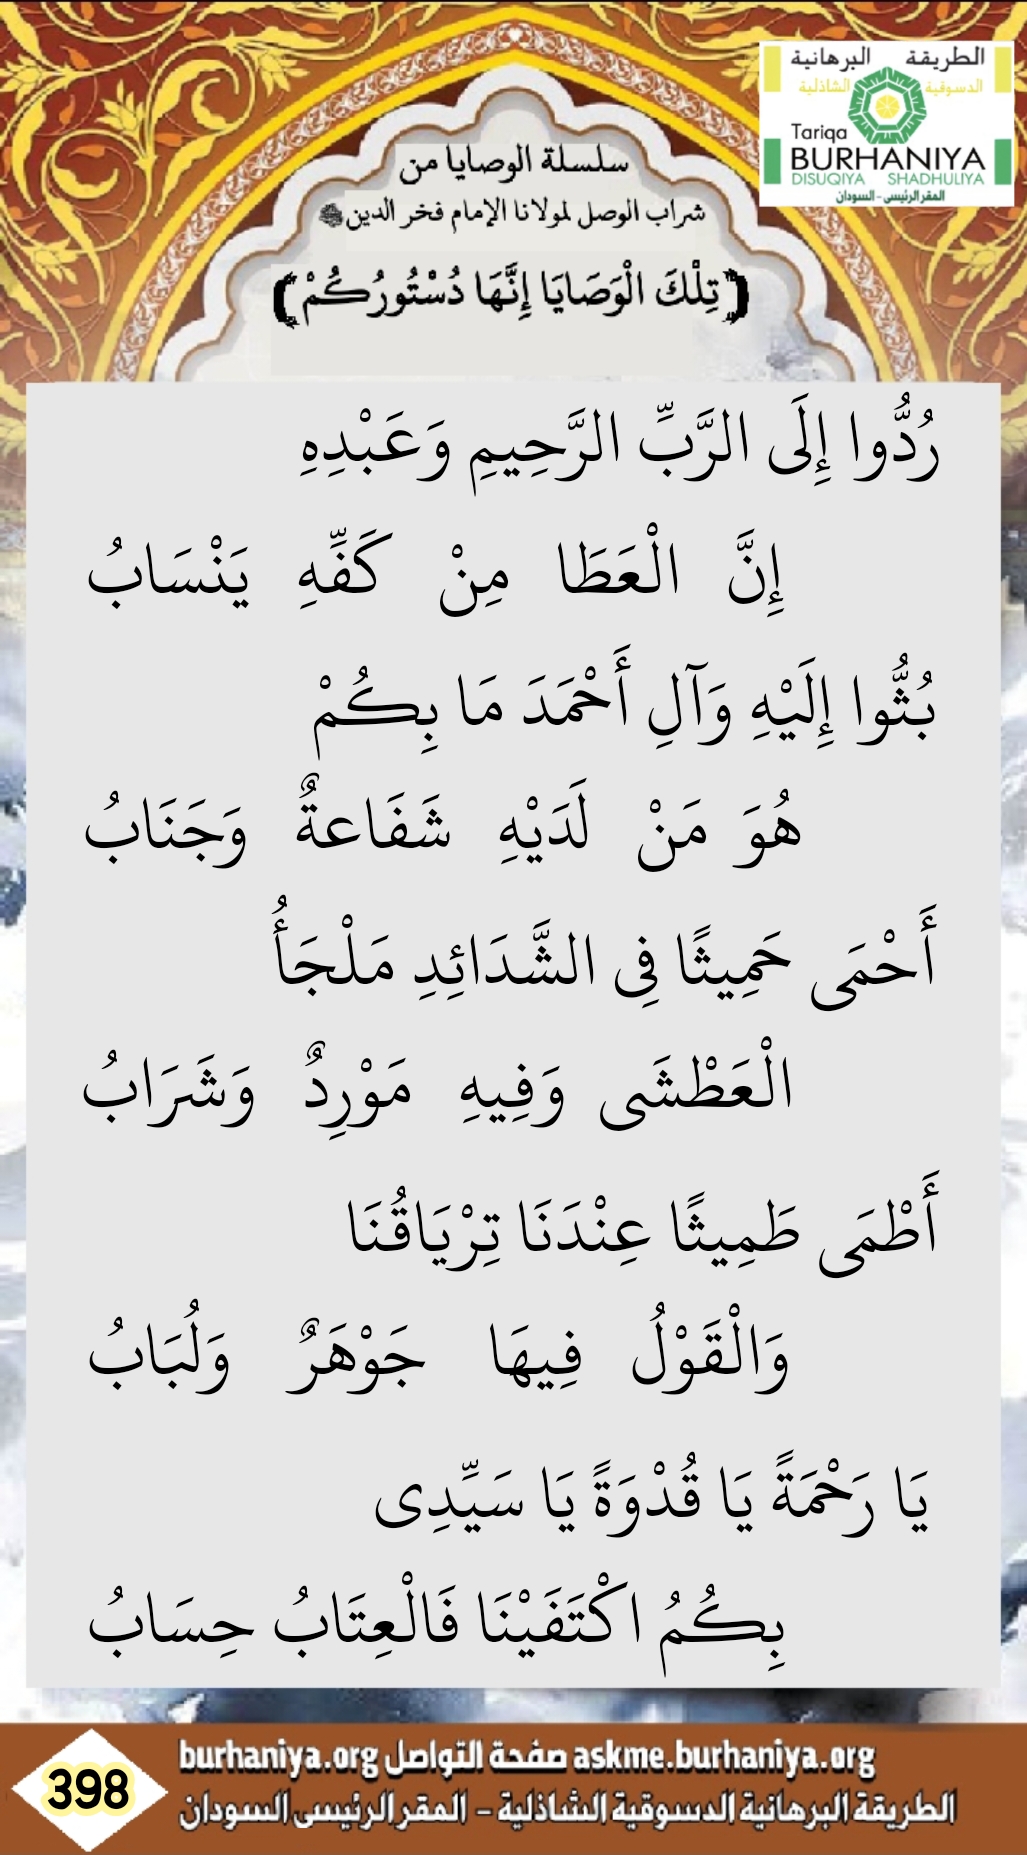 الطريقة البرهانية
الدسوقية الشاذلية
Tariqa
BURHANIYA
DISUQIYA SHADHULIYA
المقر الرئيسى - السودان
سلسلة الوصايا من
شراب الوصل لمولانا الإمام فخر الدين
﴿تِلْكَ الْوَصَايَا إِنَّهَا دُسْتُورُكُمْ﴾
رُدُّوا إِلَى الرَّبِّ الرَّحِيمِ وَعَبْدِهِ
إِنَّ الْعَطَا مِنْ كَفِّهِ يَنْسَابُ
بُثُّوا إِلَيْهِ وَآلِ أَحْمَدَ مَا بِكُمْ
هُوَ مَنْ لَدَيْهِ شَفَاعةٌ وَجَنَابُ
أَحْمَى حَمِيثًا فِى الشَّدَائِدِ مَلْجَأُ
الْعَطْشَى وَفِيهِ مَوْرِدٌ وَشَرَابُ
أَطْمَى طَمِيثًا عِنْدَنَا تِرْيَاقُنَا
وَالْقَوْلُ فِيهَا جَوْهَرٌ وَلُبَابُ
يَا رَحْمَةً يَا قُدْوَةً يَا سَيِّدِى
بِكُمُ اكْتَفَيْنَا فَالْعِتَابُ حِسَابُ
burhaniya.org صفحة التواصل askme.burhaniya.org
الطريقة البرهانية الدسوقية الشاذلية - المقر الرئيسى السودان
398